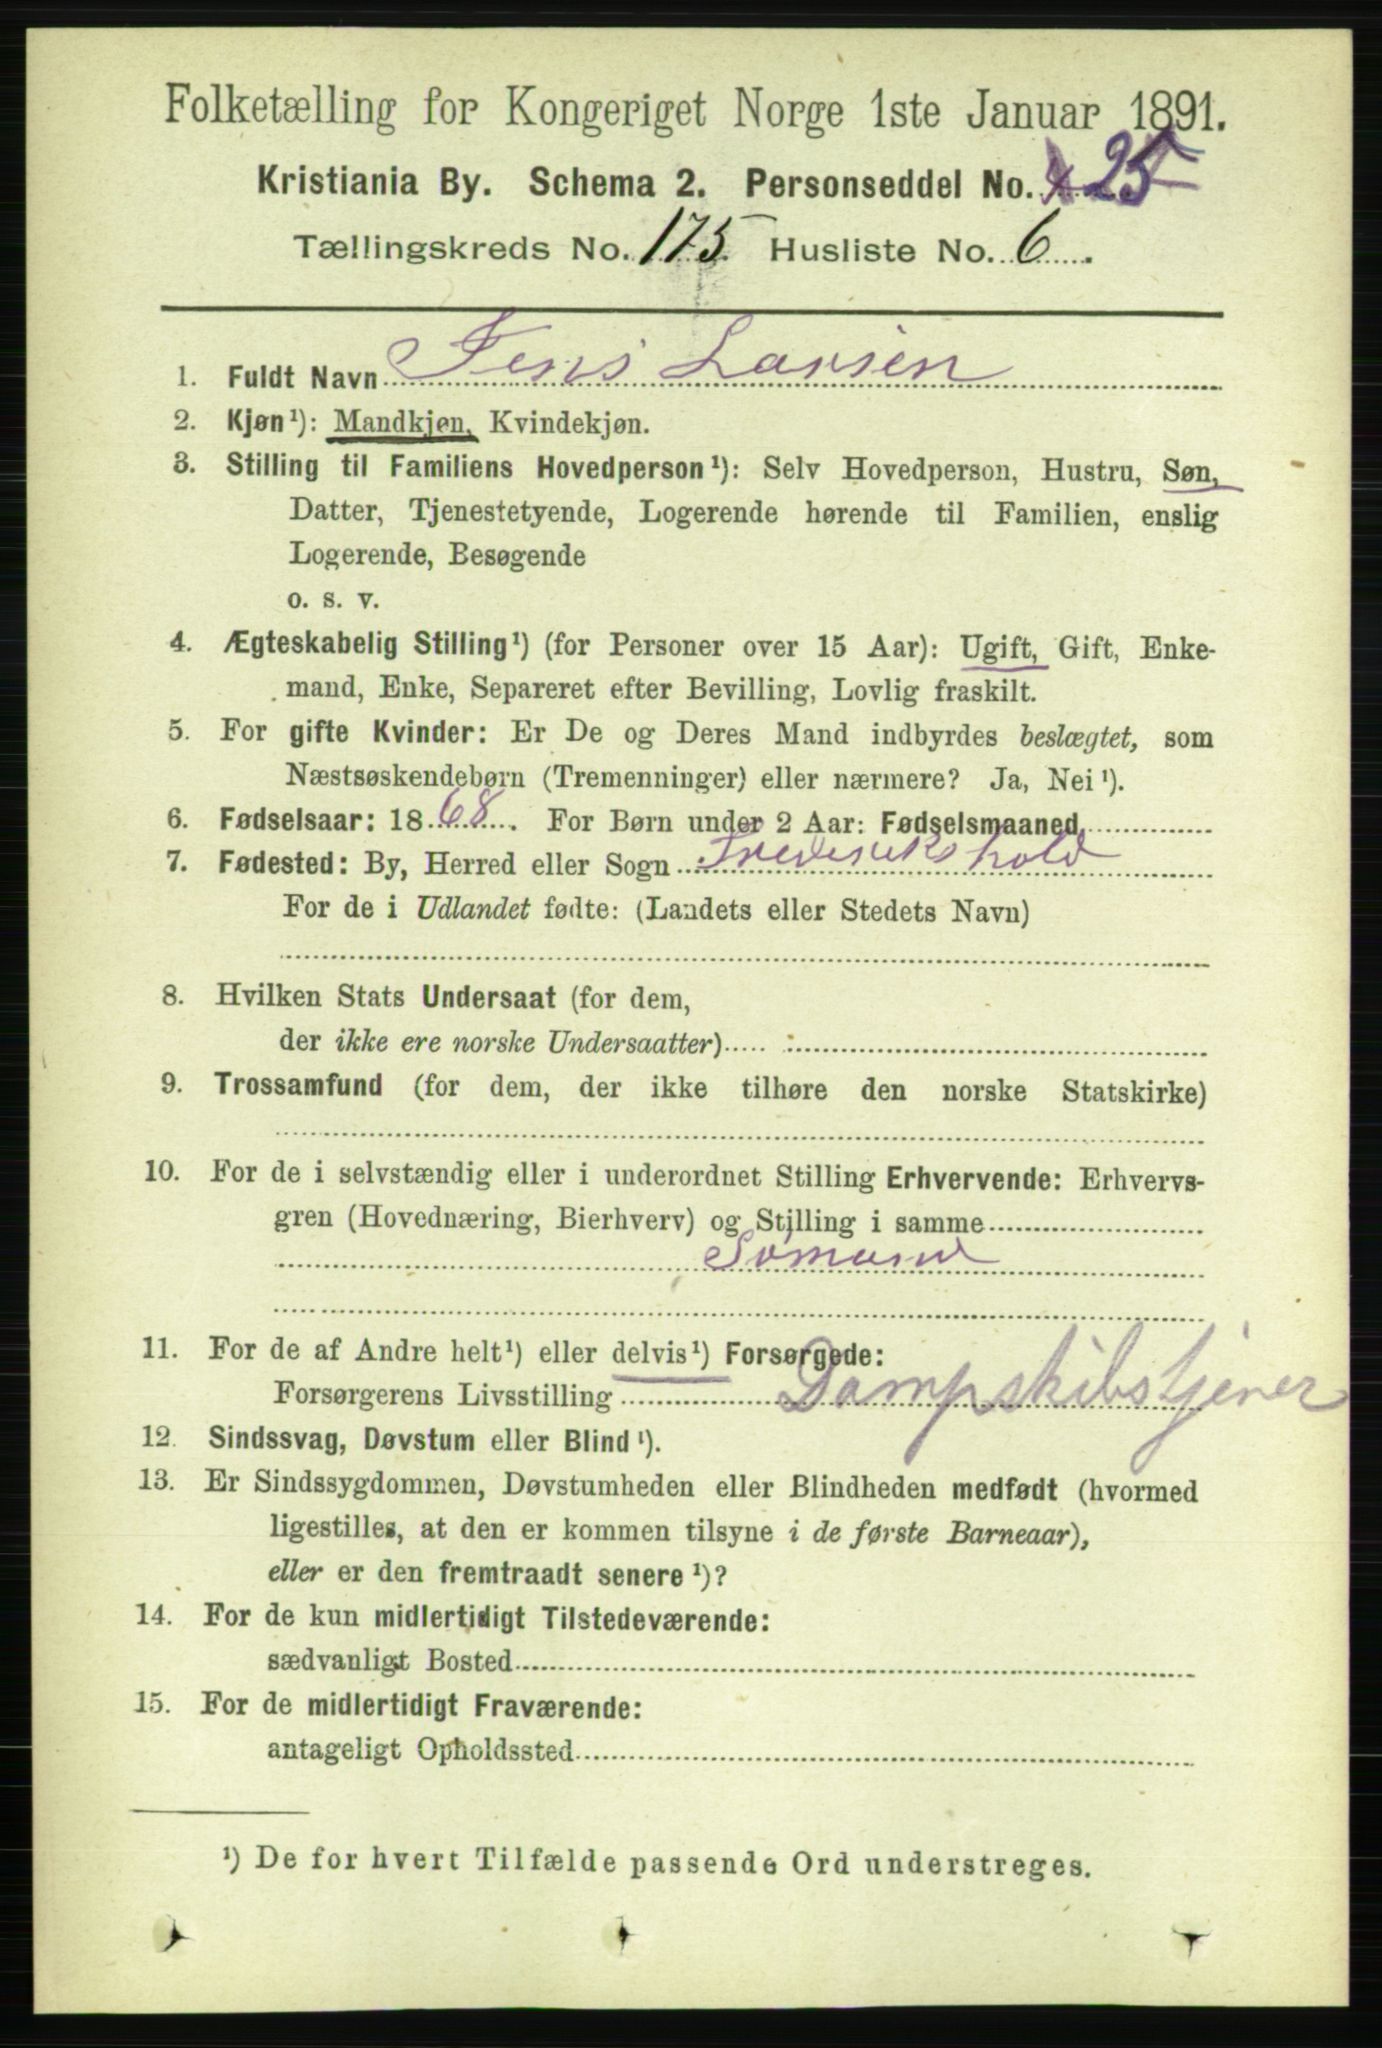 Folketælling for Kongeriget Norge 1ste Januar 1891.
Kristiania By. Schema 2. Personseddel No. 25
Tællingskreds No. 175 Husliste No. 6
1. Fuldt Navn Jens Larsen
2. Kjøn¹): Mandkjøn, Kvindekjøn.
3. Stilling til Familiens Hovedperson¹): Selv Hovedperson, Hustru, Søn,
Datter, Tjenestetyende, Logerende hørende til Familien, enslig
Logerende, Besøgende
o. s. v.
4. Ægteskabelig Stilling¹) (for Personer over 15 Aar): Ugift, Gift, Enke-
mand, Enke, Separeret efter Bevilling, Lovlig fraskilt.
5. For gifte Kvinder: Er De og Deres Mand indbyrdes beslægtet, som
Næstsøskendebørn (Tremenninger) eller nærmere? Ja, Nei¹).
6. Fødselsaar: 1868. For Børn under 2 Aar: Fødselsmaaned
7. Fødested: By, Herred eller Sogn Frederikshald
For de i Udlandet fødte: (Landets eller Stedets Navn)
8. Hvilken Stats Undersaat (for dem,
der ikke ere norske Undersaatter)
9. Trossamfund (for dem, der ikke tilhøre den norske Statskirke)
10. For de i selvstændig eller i underordnet Stilling Erhvervende: Erhvervs-
gren (Hovednæring, Bierhverv) og Stilling i samme
Sömand
11. For de af Andre helt¹) eller delvis¹) Forsørgede:
Forsørgerens Livsstilling Dampskibstjener
12. Sindssvag, Døvstum eller Blind¹).
13. Er Sindssygdommen, Døvstumheden eller Blindheden medfødt (hvormed
ligestilles, at den er kommen tilsyne i de første Barneaar),
eller er den fremtraadt senere¹)?
14. For de kun midlertidigt Tilstedeværende:
sædvanligt Bosted
15. For de midlertidigt Fraværende:
antageligt Opholdssted
¹) De for hvert Tilfælde passende Ord understreges.